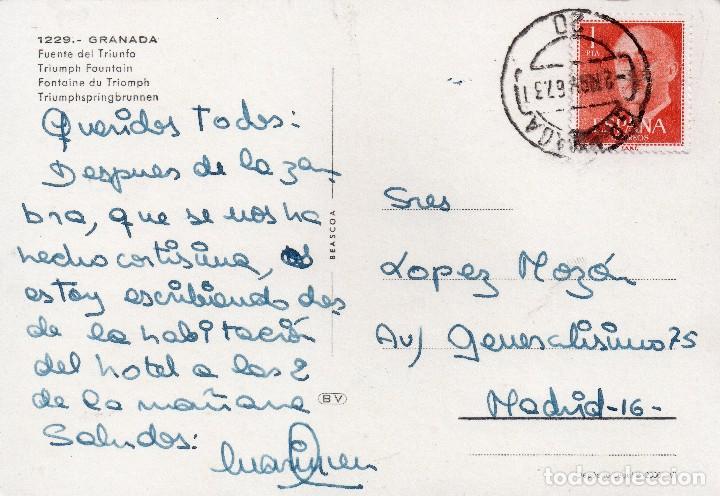 1229.- GRANADA
Fuente del Triunfo
Triumph Fountain
Fontaine du Triomph
Triumphspringbrunnen
Queridos Todos:
Despues de la zam
bra, que se nos ha
hecho cortisima,
estoy escribiendo des
de la habitación
del hotel a las 2
de la mañana
Saludos:
BEASCOA
BV
20
GRANADA
1
PTA
ESPAÑA
CORREOS
Sres
Lopez Mozón
Av/ Generalisimo 75
Madrid-16-
todocoleccion.net